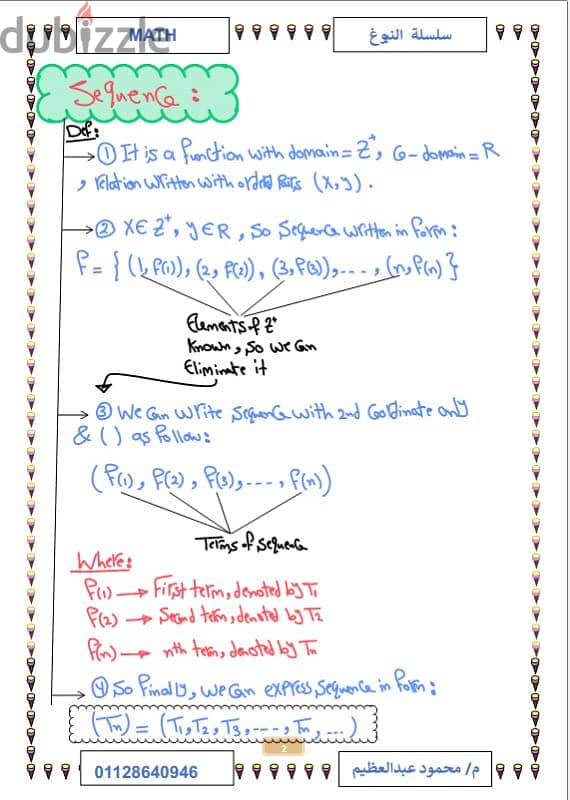 dubizzle
MATH
سلسلة النبوغ
Sequence :
Def:
① It is a function with domain = Z⁺, Co-domain = R
, relation written with orded Pairs (X, y).
② X ∈ Z⁺, y ∈ R, So Sequence written in Form:
f = { (1, f(1)), (2, f(2)), (3, f(3)), ..., (n, f(n) }
Elements of Z⁺
Known, So we Can
Eliminate it
③ We Can write Sequence with 2nd Coordinate only
& ( ) as follow:
(f(1), f(2), f(3), ..., f(n))
Terms of sequence
Where:
f(1) → First term, denoted by T₁
f(2) → Second term, denoted by T₂
f(n) → nth term, denoted by Tₙ
④ So Finally, we Can express Sequence in Form:
(Tₙ) = (T₁, T₂, T₃, ..., Tₙ, ...)
2
01128640946
م/ محمود عبدالعظيم